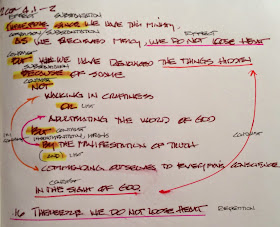 2 COR 4.1-2
EFFECT SUBORDINATION
THEREFORE SINCE WE HAVE THIS MINISTRY
COMPARISON/SUBORDINATION EFFECT
AS WE RECEIVED MERCY, WE DO NOT LOOSE HEART
CONTRAST
BUT WE WE HAVE THE THINGS HIDDEN
SUBORDINATION
BECAUSE OF
CONTRAST
NOT
WALKING IN CRAFTINESS
OR LIST
ADULTERATING THE WORD OF GOD
BUT CONTRAST
BY THE MANIFESTATION OF TRUTH
(AND) LIST
COMMENDING OURSELVES TO EVERYONES CONSCIENCE
CONTEXT
IN THE SIGHT OF GOD
.16 THEREFORE WE DO NOT LOOSE HEART REPETITION